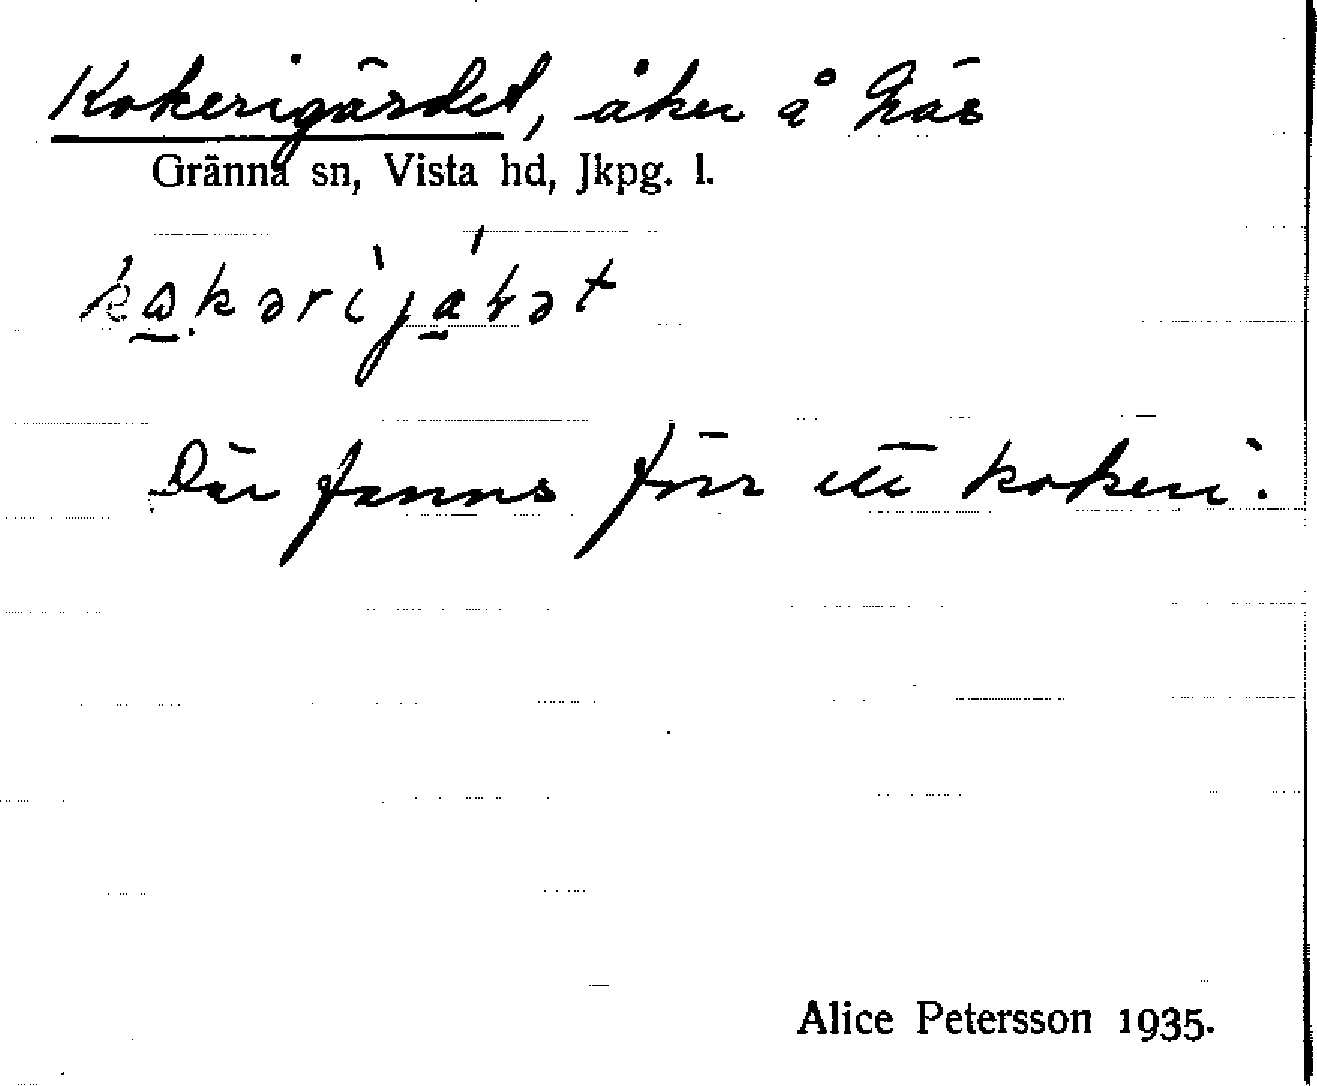 Kokerigärdet, åker å Näs
Gränna sn, Vista hd, Jkpg. l.
Där fanns förr ett kokeri.
Alice Petersson 1935.